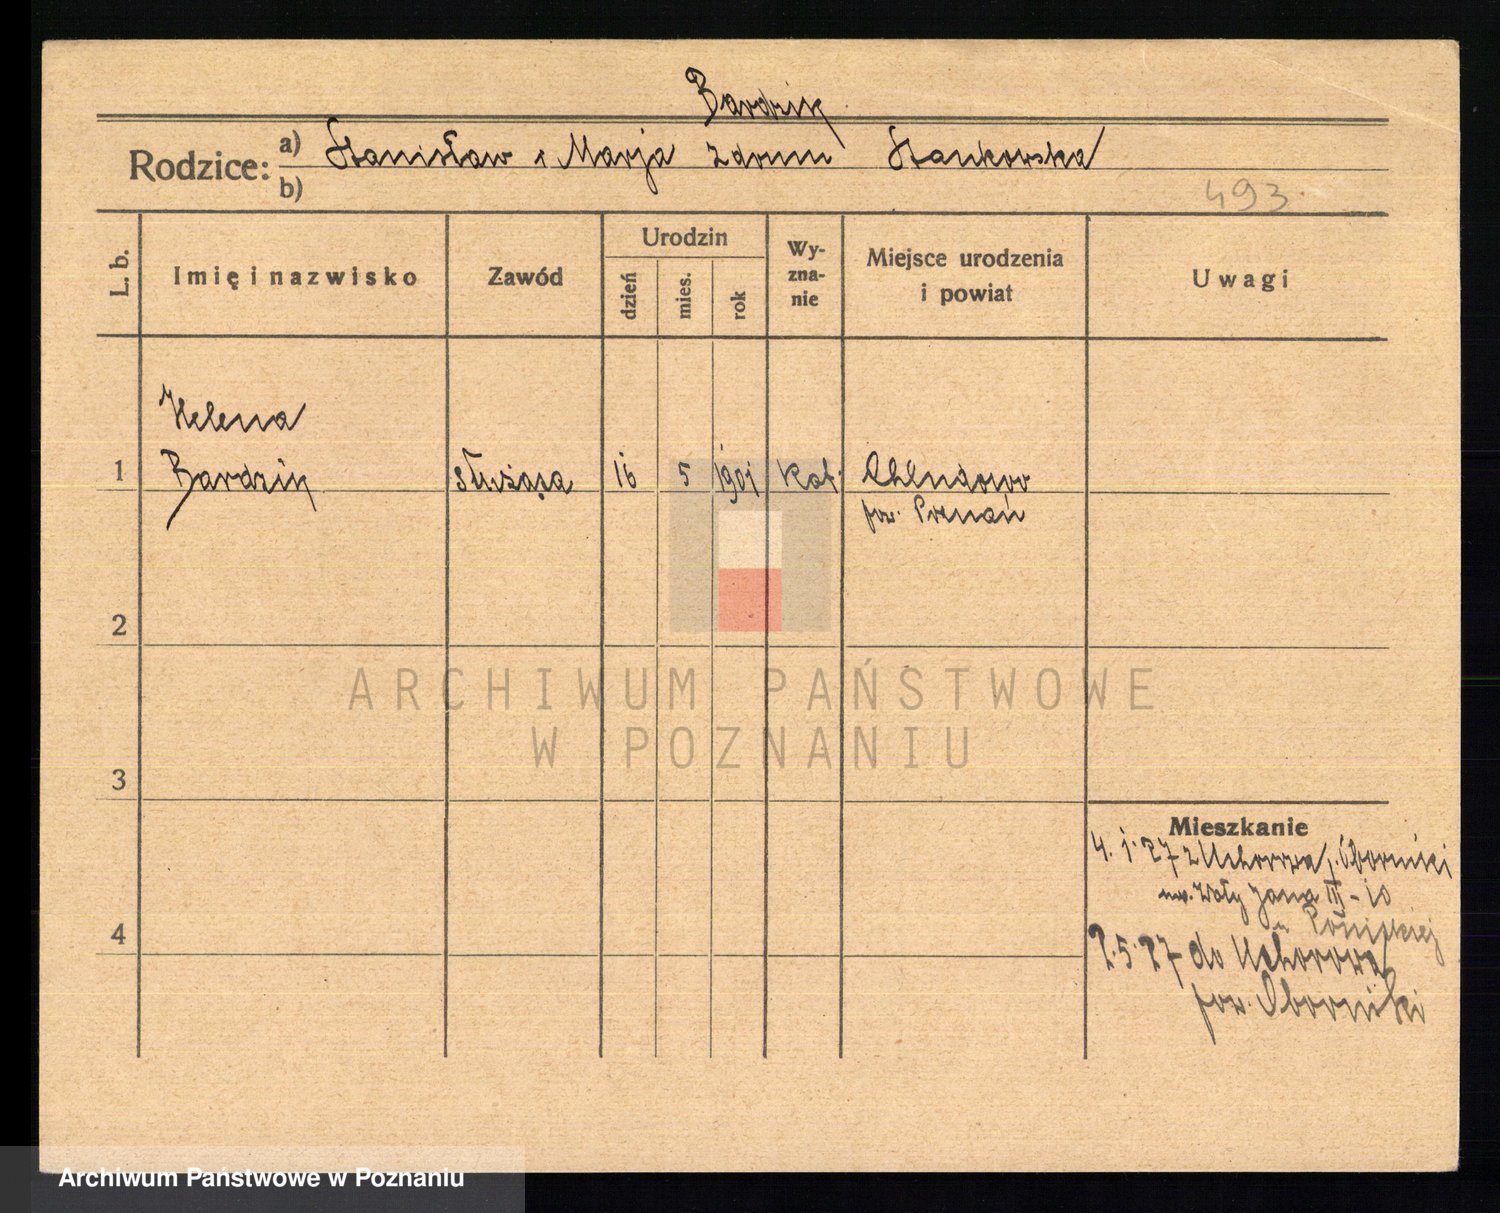 Bardzik
Rodzice: a) Stanisław i Marja z domu Stankowska
b)
493
L. b.
Imię i nazwisko
Zawód
Urodzin
dzień
mies.
rok
Wy-
zna-
nie
Miejsce urodzenia
i powiat
Uwagi
Helena
1 Bardzik służąca 16 5 1901 kat. Chludowo
pow. Poznań
2
ARCHIWUM PAŃSTWOWE
W POZNANIU
3
Mieszkanie
4. 1. 27 z Uchorowa, p. Oborniki
Jana III - 10
4
2. 5. 27 do Uchorowa
pow. Oborniki
Archiwum Państwowe w Poznaniu